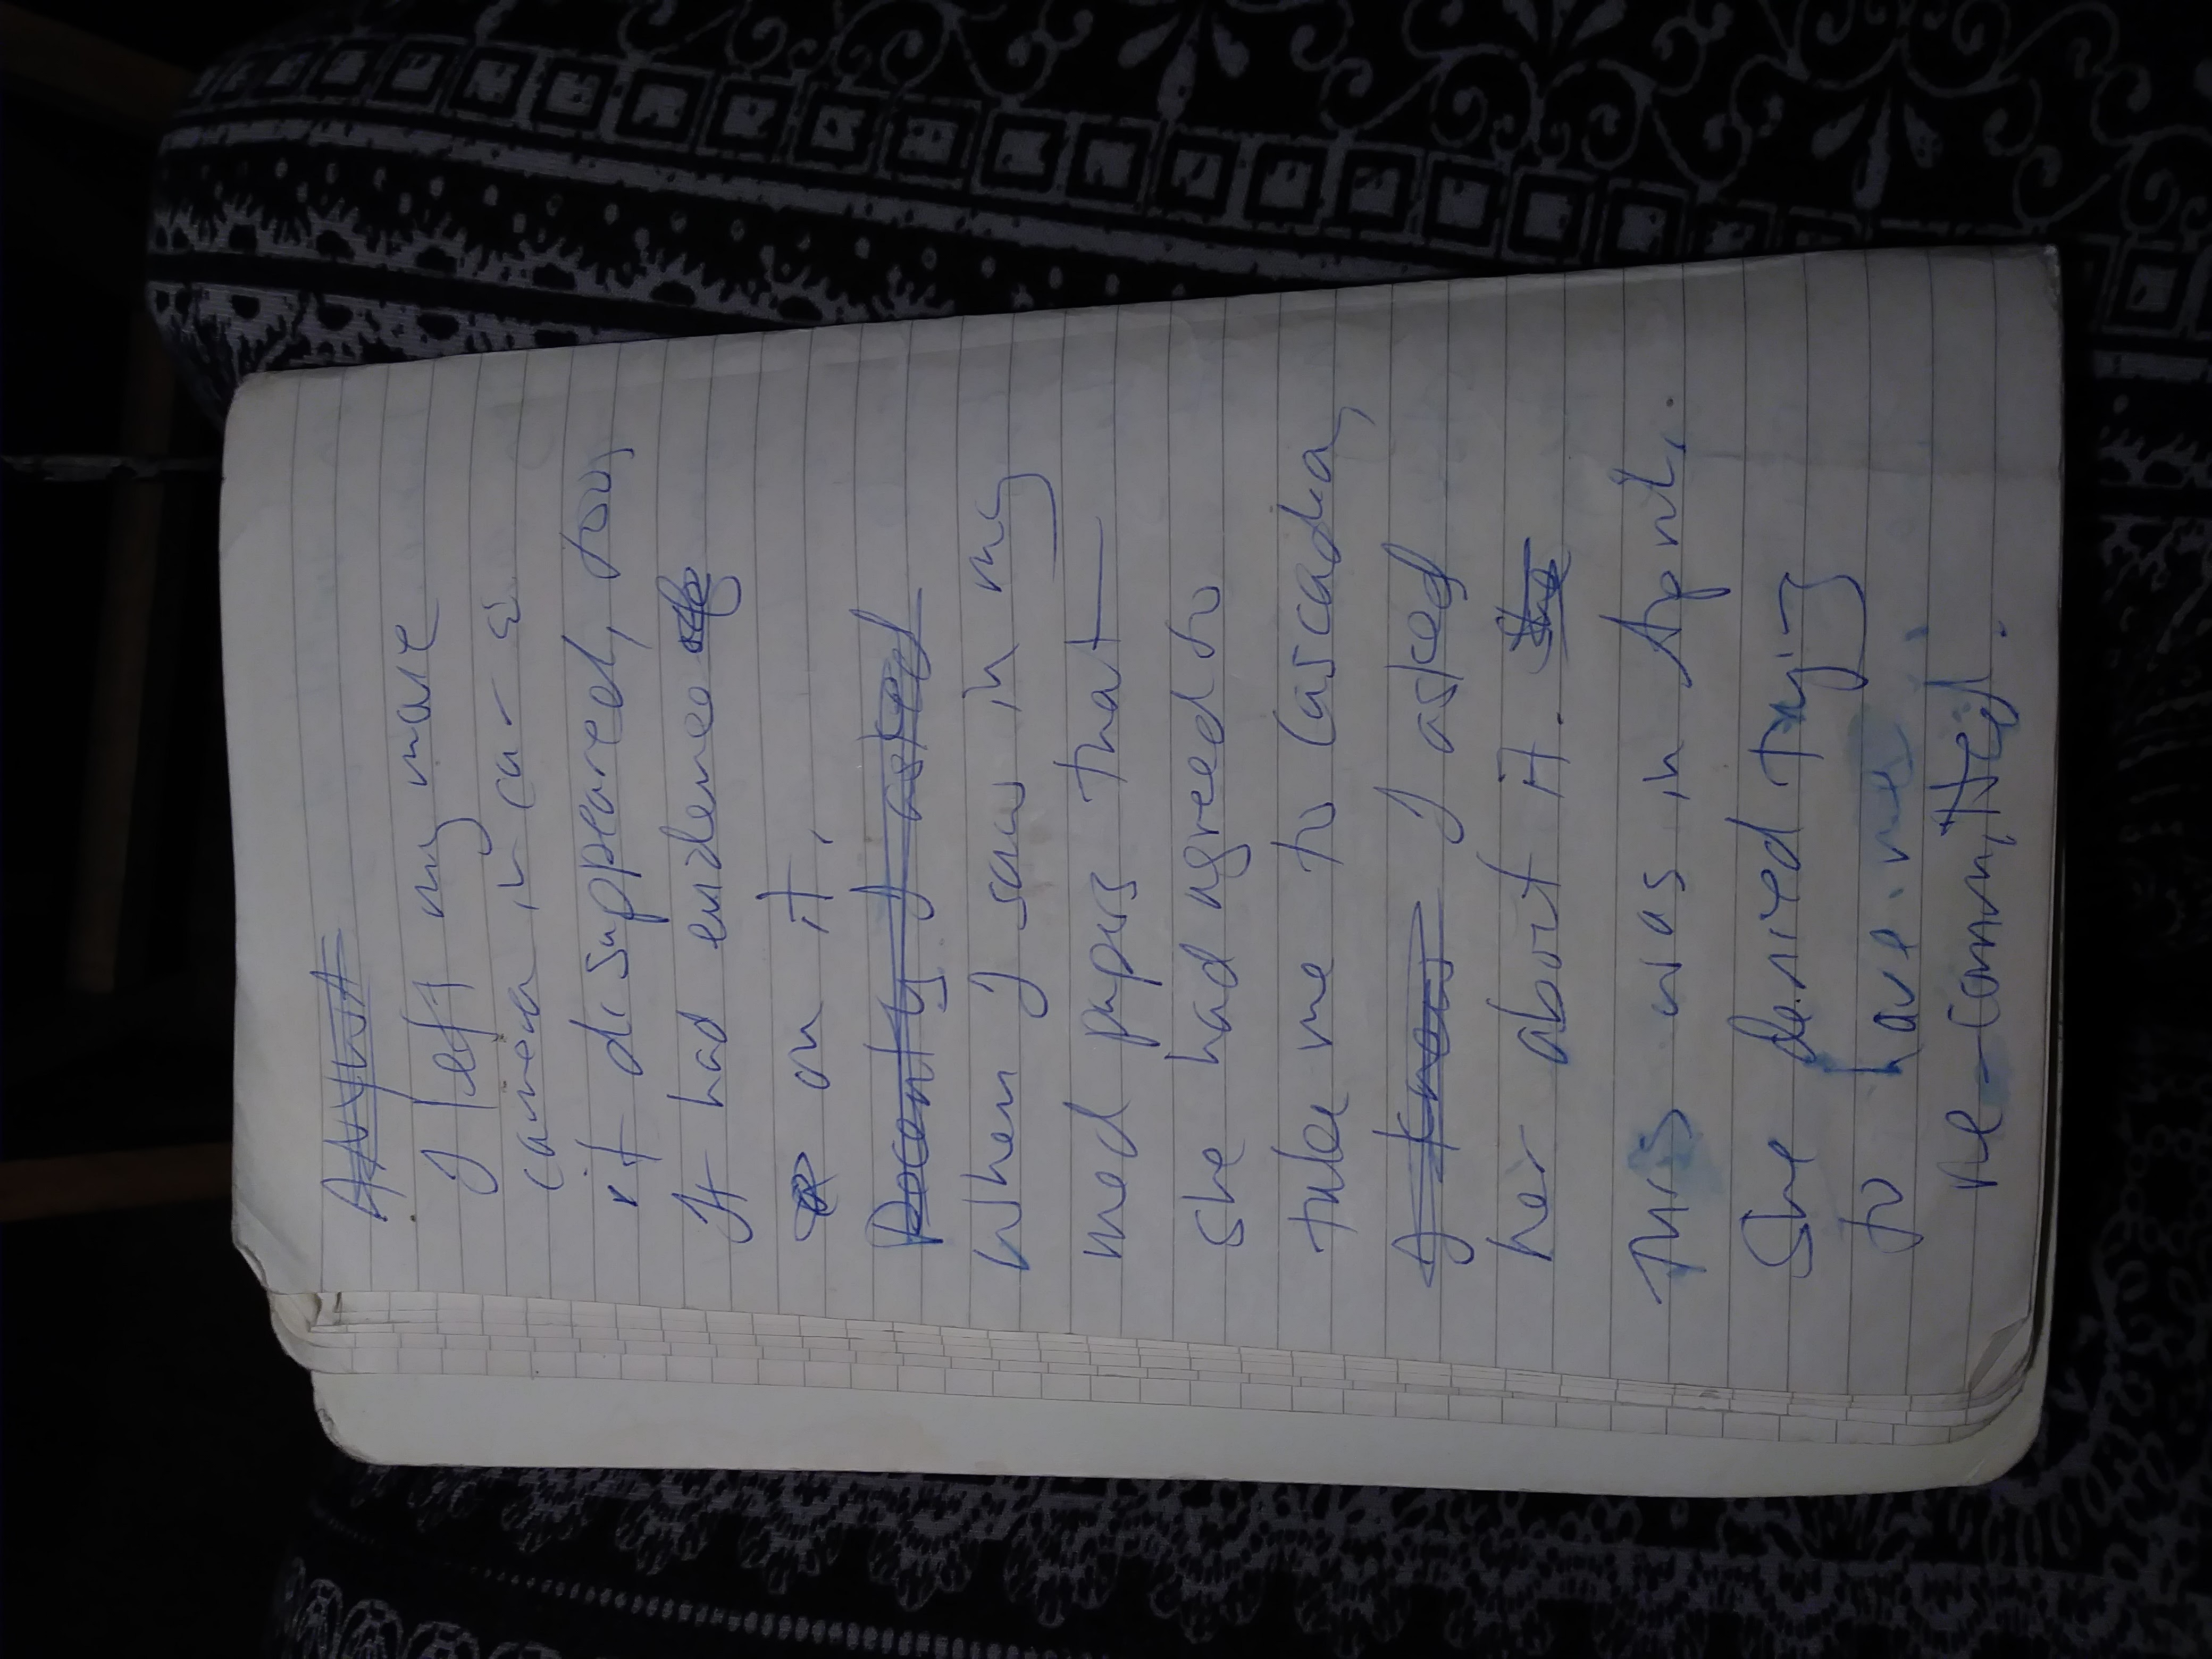 I left my
camera in car &
it disappeared, too,
It had evidence
on it.
Recently I asked
When I saw in my
med papers that
she had agreed to
take me to Cascadia,
I know I asked
her about it. She
This was in April.
She denied trying
to have me
re-committed.